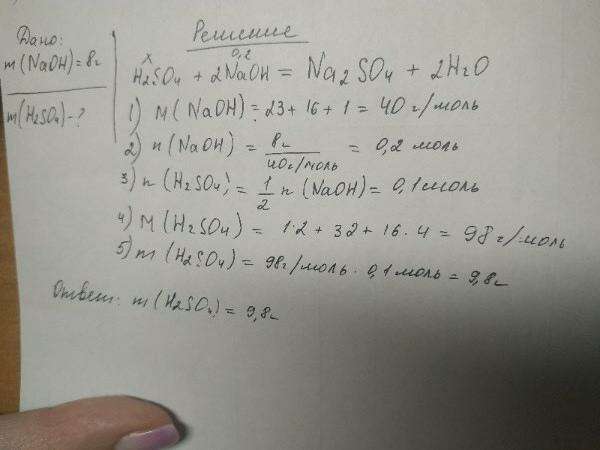 Дано:
m(NaOH)=8г
m(H2SO4)-?
Решение
x 0,2
H2SO4 + 2NaOH = Na2SO4 + 2H2O
1) M(NaOH) = 23 + 16 + 1 = 40 г/моль
2) n(NaOH) = 8г / 40г/моль = 0,2 моль
3) n(H2SO4) = 1/2 n(NaOH) = 0,1моль
4) M(H2SO4) = 1·2 + 32 + 16·4 = 98 г/моль
5) m(H2SO4) = 98г/моль · 0,1моль = 9,8г
Ответ: m(H2SO4) = 9,8г